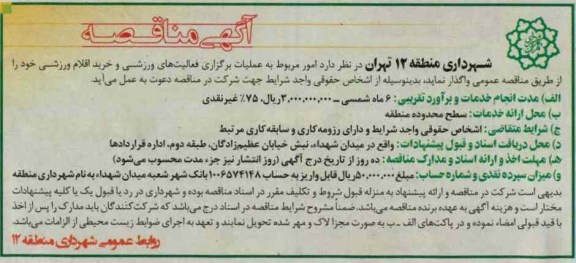 آگهی مناقصه
شهرداری منطقه ۱۲ تهران در نظر دارد امور مربوط به عملیات برگزاری فعالیت‌های ورزشی و خرید اقلام ورزشی خود را
از طریق مناقصه عمومی واگذار نماید، بدینوسیله از اشخاص حقوقی واجد شرایط جهت شرکت در مناقصه دعوت به عمل می‌آید.
الف) مدت انجام خدمات و برآورد تقریبی: ۶ ماه شمسی ــ ۳,۰۰۰,۰۰۰,۰۰۰ریال، ۷۵٪ غیرنقدی
ب) محل ارائه خدمات: سطح محدوده منطقه
ج) شرایط متقاضی: اشخاص حقوقی واجد شرایط و دارای رزومه کاری و سابقه کاری مرتبط
د) محل دریافت اسناد و قبول پیشنهادات: واقع در میدان شهداء، نبش خیابان عظیم‌زادگان، طبقه دوم، اداره قراردادها
هـ) مهلت اخذ و ارائه اسناد و مدارک مناقصه: ده روز از تاریخ درج آگهی (روز انتشار نیز جزء مدت محسوب می‌شود)
و) میزان سپرده نقدی و شماره حساب: مبلغ ۵۰,۰۰۰,۰۰۰ریال قابل واریز به حساب ۱۰۰۶۵۷۴۱۴۸ بانک شهر شعبه میدان شهداء به نام شهرداری منطقه
بدیهی است شرکت در مناقصه و ارائه پیشنهاد به منزله قبول شروط و تکلیف مقرر در اسناد مناقصه بوده و شهرداری در رد یا قبول یک یا کلیه پیشنهادات
مختار است و هزینه آگهی به عهده برنده مناقصه می‌باشد. ضمناً مشروح شرایط مناقصه در اسناد درج می‌باشد که شرکت‌کنندگان باید مدارک را پس از اخذ
با قید قبولی امضاء نموده و در پاکت‌های الف ــ ب به صورت مجزا لاک و مهر شده تحویل نمایند و تعهد به اجرای ضوابط زیست محیطی از الزامات می‌باشد.
روابط عمومی شهرداری منطقه ۱۲